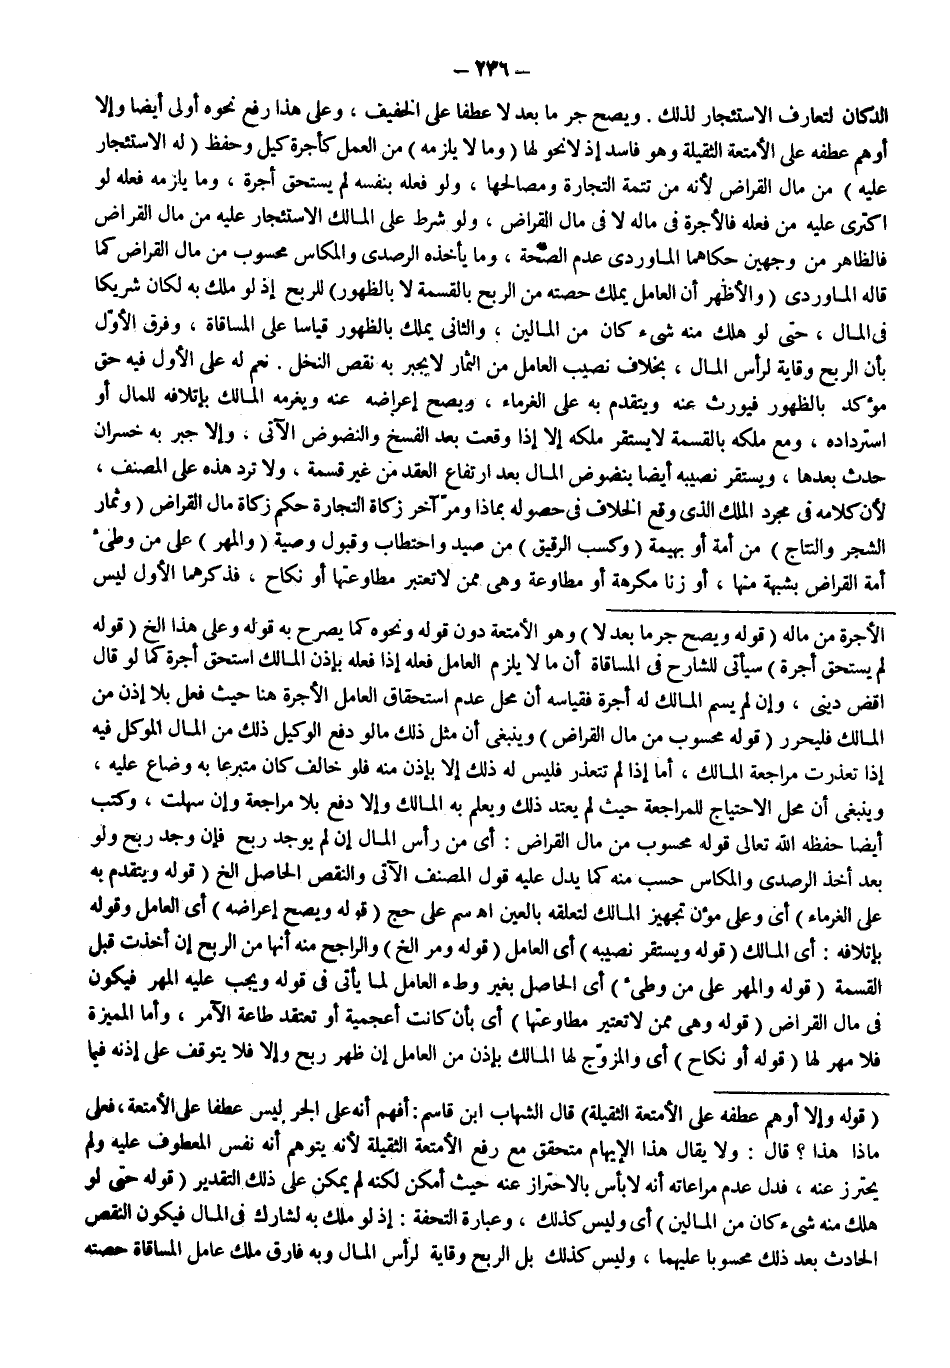 - ٢٣٦ -
الدكان لتعارف الاستئجار لذلك . ويصح جر ما بعد لا عطفا على الخفيف ، وعلى هذا رفع نحوه أولى أيضا وإلا
أوهم عطفه على الأمتعة الثقيلة وهو فاسد إذ لا نحو لها ( وما لا يلزمه ) من العمل كأجرة كيل وحفظ ( له الاستئجار
عليه ) من مال القراض لأنه من تتمة التجارة ومصالحها ، ولو فعله بنفسه لم يستحق أجرة ، وما يلزمه فعله لو
اكترى عليه من فعله فالأجرة فى ماله لا فى مال القراض ، ولو شرط على المالك الاستئجار عليه من مال القراض
فالظاهر من وجهين حكاهما الماوردى عدم الصحة ، وما يأخذه الرصدى والمكاس محسوب من مال القراض كما
قاله الماوردى ( والأظهر أن العامل يملك حصته من الربح بالقسمة لا بالظهور) للربح إذ لو ملك به لكان شريكا
فى المال ، حتى لو هلك منه شىء كان من المالين ، والثانى يملك بالظهور قياسا على المساقاة ، وفرق الأوّل
بأن الربح وقاية لرأس المال ، بخلاف نصيب العامل من الثمار لا يجبر به نقص النخل . نعم له على الأول فيه حق
مؤكد بالظهور فيورث عنه ويتقدم به على الغرماء ، ويصح إعراضه عنه ويغرمه المالك بإتلافه للمال أو
استرداده ، ومع ملكه بالقسمة لا يستقر ملكه إلا إذا وقعت بعد الفسخ والنضوض الآتى ، وإلا جبر به خسران
حدث بعدها ، ويستقر نصيبه أيضا بنضوض المال بعد ارتفاع العقد من غير قسمة ، ولا ترد هذه على المصنف ،
لأن كلامه فى مجرد الملك الذى وقع الخلاف فى حصوله بماذا ومرّ آخر زكاة التجارة حكم زكاة مال القراض ( وثمار
الشجر والنتاج ) من أمة أو بهيمة ( وكسب الرقيق ) من صيد واحتطاب وقبول وصية ( والمهر ) على من وطئ
أمة القراض بشبهة منها ، أو زنا مكرهة أو مطاوعة وهى ممن لا تعتبر مطاوعتها أو نكاح ، فذكرهما الأول ليس
الأجرة من ماله ( قوله ويصح جر ما بعد لا ) وهو الأمتعة دون قوله ونحوه كما يصرح به قوله وعلى هذا الخ ( قوله
لم يستحق أجرة ) سيأتى للشارح فى المساقاة أن ما لا يلزم العامل فعله إذا فعله بإذن المالك استحق أجرة كما لو قال
اقض دينى ، وإن لم يسم المالك له أجرة فقياسه أن محل عدم استحقاق العامل الأجرة هنا حيث فعل بلا إذن من
المالك فليحرر ( قوله محسوب من مال القراض ) وينبغى أن مثل ذلك ما لو دفع الوكيل ذلك من المال الموكل فيه
إذا تعذرت مراجعة المالك ، أما إذا لم تتعذر فليس له ذلك إلا بإذن منه فلو خالف كان متبرعا به وضاع عليه ،
وينبغى أن محل الاحتياج للمراجعة حيث لم يعتد ذلك ويعلم به المالك وإلا دفع بلا مراجعة وإن سهلت ، وكتب
أيضا حفظه الله تعالى قوله محسوب من مال القراض : أى من رأس المال إن لم يوجد ربح فإن وجد ربح ولو
بعد أخذ الرصدى والمكاس حسب منه كما يدل عليه قول المصنف الآتى والنقص الحاصل الخ ( قوله ويتقدم به
على الغرماء ) أى وعلى مؤن تجهيز المالك لتعلقه بالعين اه سم على حج ( قوله ويصح إعراضه ) أى العامل وقوله
بإتلافه : أى المالك ( قوله ويستقر نصيبه ) أى العامل ( قوله ومر الخ ) والراجح منه أنها من الربح إن أخذت قبل
القسمة ( قوله والمهر على من وطئ ) أى الحاصل بغير وطء العامل لما يأتى فى قوله ويجب عليه المهر فيكون
فى مال القراض ( قوله وهى ممن لا تعتبر مطاوعتها ) أى بأن كانت أعجمية أو تعتقد طاعة الآمر ، وأما المميزة
فلا مهر لها ( قوله أو نكاح ) أى والمزوّج لها المالك بإذن من العامل إن ظهر ربح وإلا فلا يتوقف على إذنه فيما
( قوله وإلا أوهم عطفه على الأمتعة الثقيلة) قال الشهاب ابن قاسم: أفهم أنه على الجر ليس عطفا على الأمتعة، فعلى
ماذا هذا ؟ قال : ولا يقال هذا الإيهام متحقق مع رفع الأمتعة الثقيلة لأنه يتوهم أنه نفس المعطوف عليه ولم
يحترز عنه ، فدل عدم مراعاته أنه لا بأس بالاحتراز عنه حيث أمكن لكنه لم يمكن على ذلك التقدير ( قوله حتى لو
هلك منه شىء كان من المالين ) أى وليس كذلك ، وعبارة التحفة : إذ لو ملك به لشارك فى المال فيكون النقص
الحادث بعد ذلك محسوبا عليهما ، وليس كذلك بل الربح وقاية لرأس المال وبه فارق ملك عامل المساقاة حصته